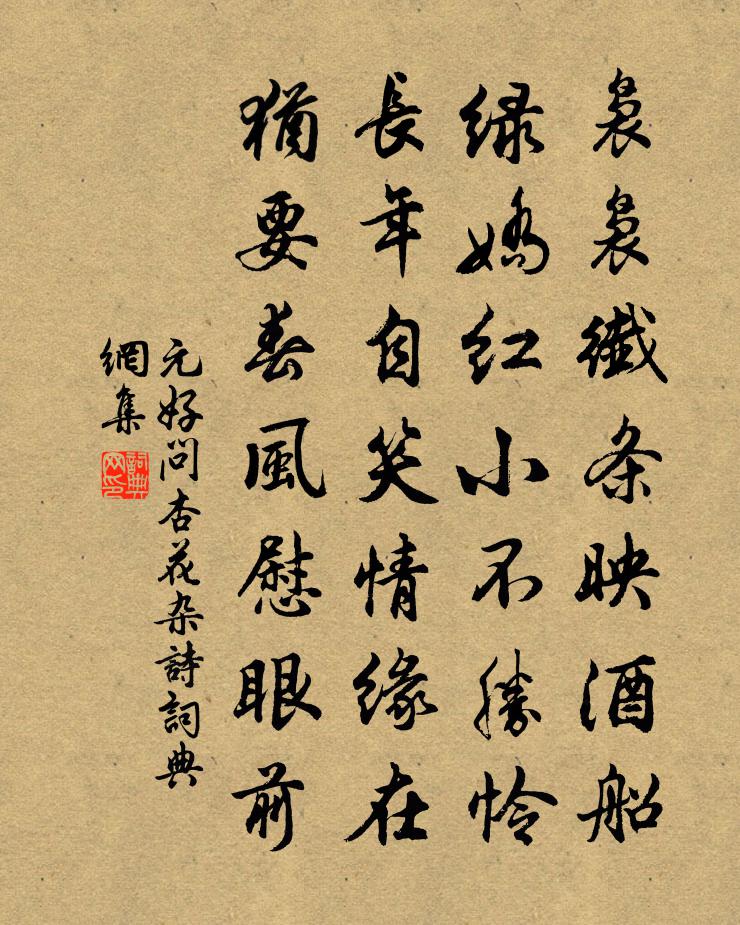 袅袅纖条映酒船
緑嬌紅小不勝怜
長年自笑情緣在
猶要春風慰眼前
元好問杏花杂詩詞典
網集
詞典
网印